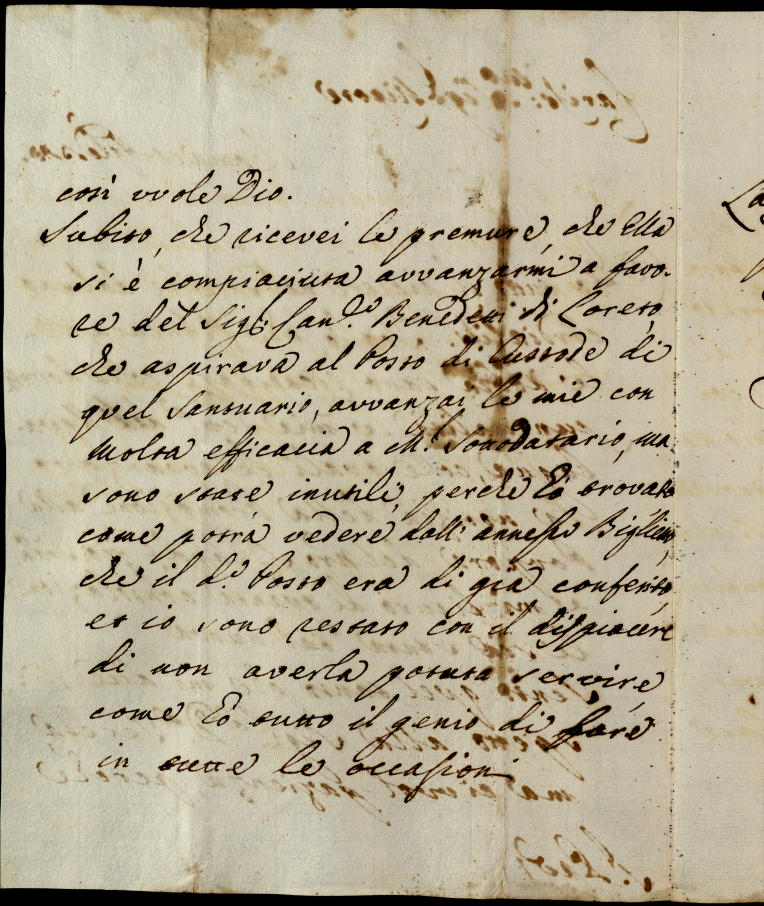 così vuole Dio.
Subito, che ricevei le premure, che Ella
si è compiaciuta avvanzarmi a favo-
re del Sig.r Can.co Benedetti di Loreto,
che aspirava al Posto di Custode di
quel Santuario, avvanzai le mie con
molta efficacia a M.r Sottodatario, ma
sono state inutili, perche hò trovato
come potrà vedere dall' annesso Biglietto,
che il d.o Posto era di già conferito,
et io sono restato con il dispiacere
di non averla potuta servire
come hò tutto il genio di fare
in tutte le occasioni